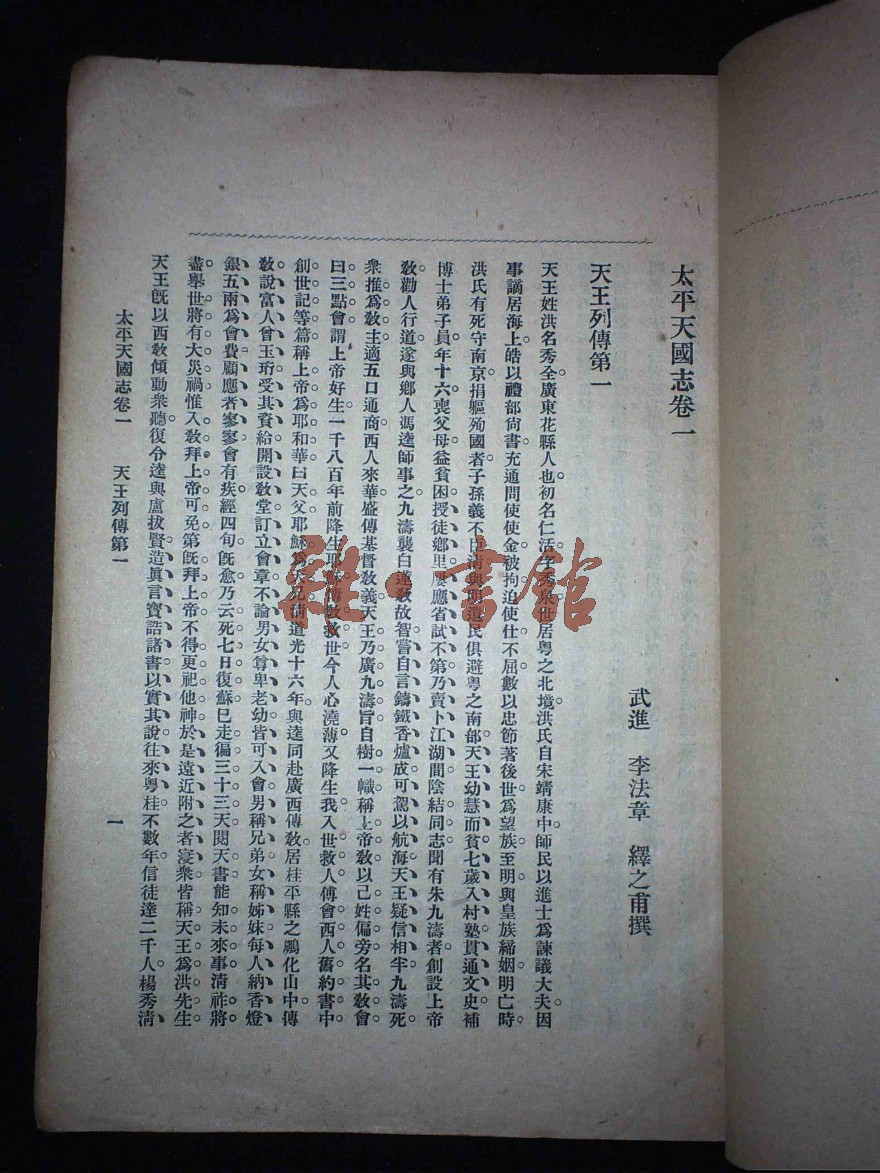 太平天國志卷一
武進　李法章　繹之甫撰
天王列傳第一
天王姓洪名秀全廣東花縣人也初名仁活字秀泉世居粵之北境洪氏自宋靖康中師民以進士爲諫議大夫因
事謫居海上皓以禮部尙書充通問使使金被拘迫使仕不屈數以忠節著後世爲望族至明與皇族締姻明亡時
洪氏有死守南京捐軀殉國者子孫義不臣淸與明遺民俱避粵之南部天王幼慧而貧七歲入村塾貫通文史補
博士弟子員年十六喪父母益貧困授徒鄕里屢應省試不第乃賣卜江湖間陰結同志聞有朱九濤者創設上帝
敎勸人行道遂與鄕人馮逵師事之九濤襲白蓮敎故智嘗自言鑄鐵香爐成可駕以航海天王疑信相半九濤死
衆推爲敎主適五口通商西人來華盛傳基督敎義天王乃廣九濤旨自樹一幟稱上帝敎以己姓偏旁名其敎會
曰三點會謂上帝好生一千八百年前降生耶穌傳敎救世今人心澆薄又降生我入世救人傅會西人舊約書中
創世記等篇稱上帝爲耶和華曰天父耶穌爲天兄淸道光十六年與逵同赴廣西傳敎居桂平縣之鵬化山中傳
敎說富人曾玉珩受其資給開設敎堂訂立會章不論男女尊卑老幼皆可入會男稱兄弟女稱姊妹每人納香燈
銀五兩爲會費顧應者寥寥會有疾經四旬旣愈乃云死七日復蘇已走徧三十三天閱天書能知未來事淸祚將
盡舉世將有大災禍惟入敎拜上帝可免第旣拜上帝不得更祀他神於是遠近附之者寖衆皆稱天王爲洪先生
天王旣以西敎傾動衆聽復令逵與盧拔賢造眞言寶誥諸書以實其說往來粵桂不數年信徒達二千人楊秀淸
太平天國志卷一　天王列傳第一
一
雜·書館